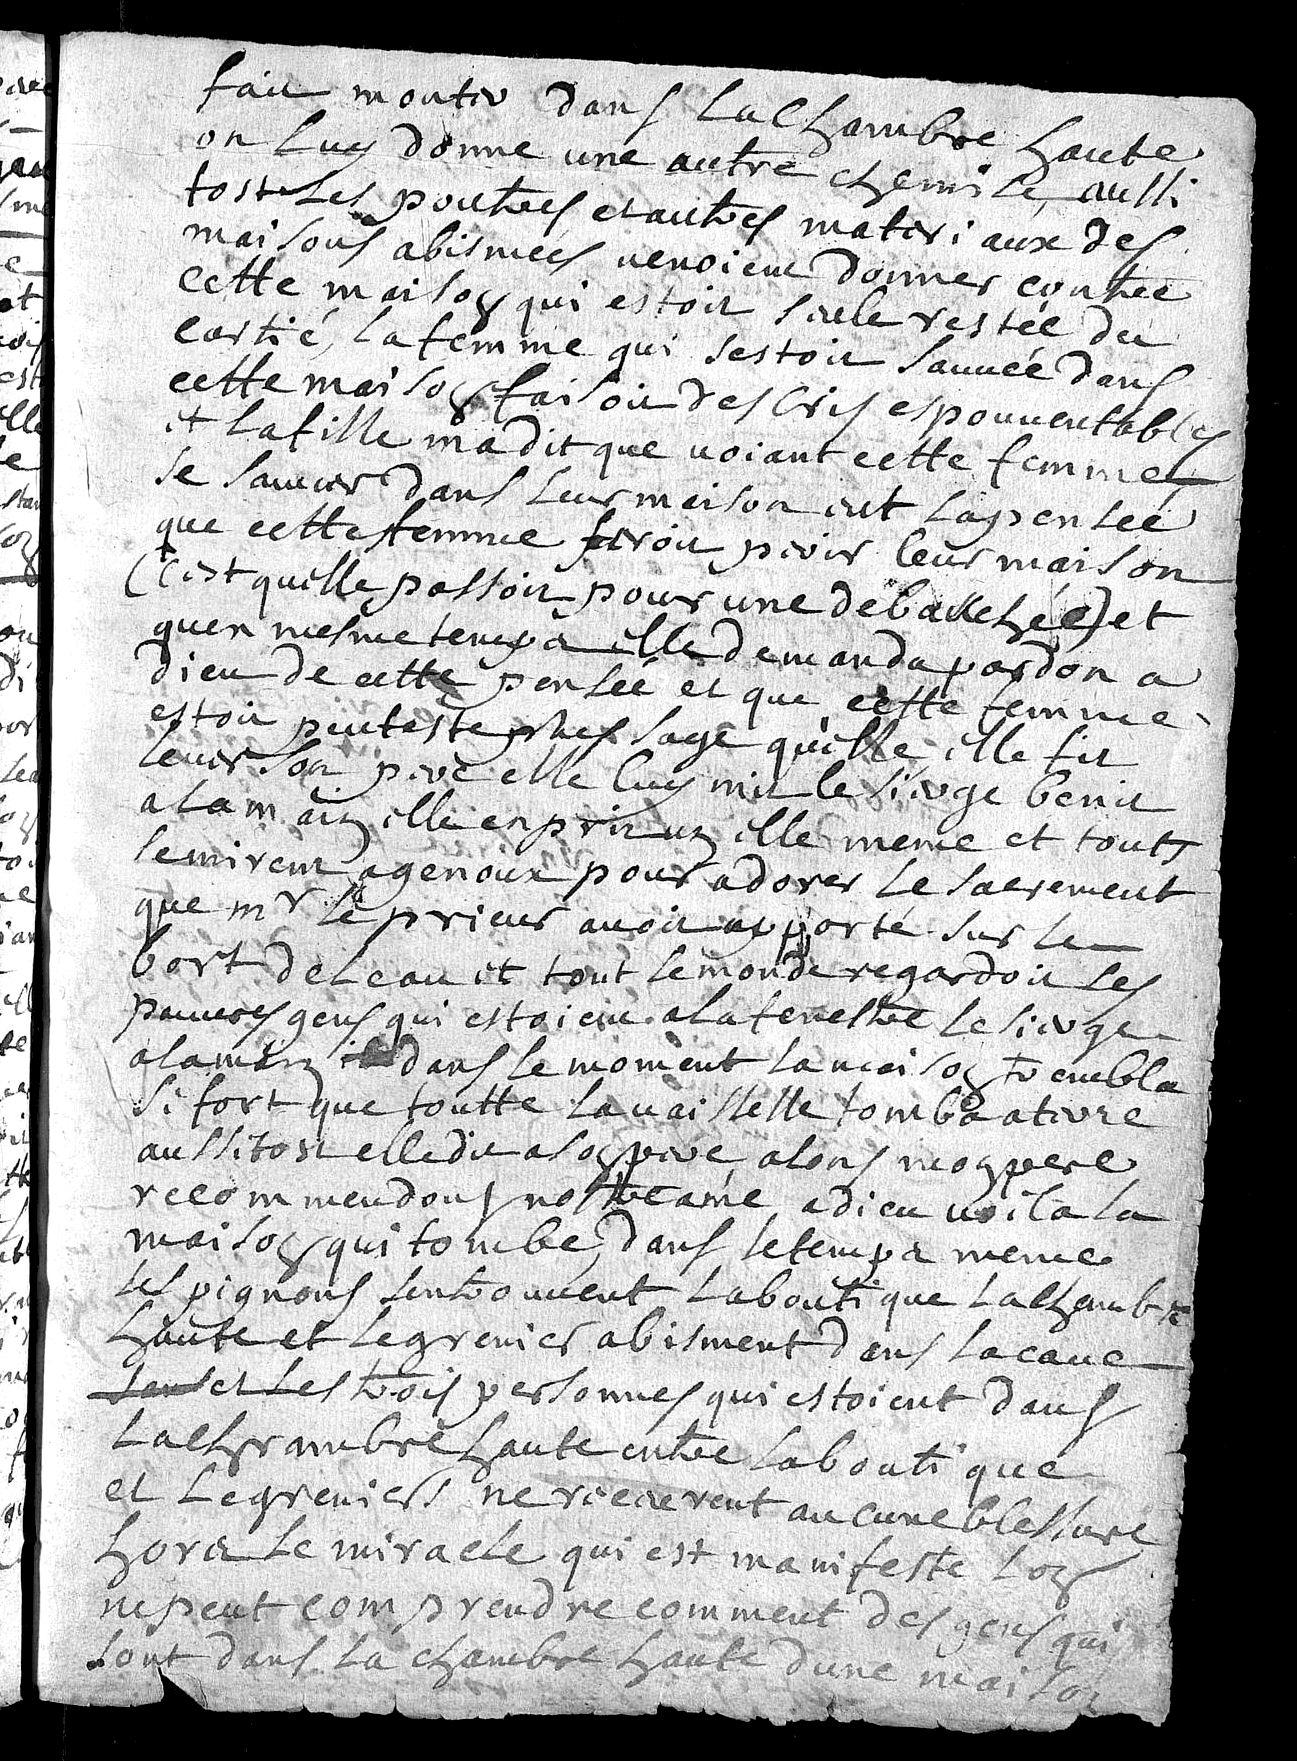 fait monter dans la chambre haute
on luy donne une autre chemise, aussi
tost les poutres et autres materiaux des
maisons abismées uenoient donner contre
cette maison qui estoit seule restée du
cartié, la femme qui sestoit sauuée dans
cette maison faisoit des cris espouuentables
et la fille ma dit que uoiant cette femme
se sauuer dans leur maison eut la pensée
que cette femme feroit perir leur maison
(cest quelle passoit pour une debauchée) et
quen mesme temps elle demanda pardon a
dieu de cette pensée et que cette femme
estoit peuteste plus sage quelle, elle fit
leuer son pere elle luy mit le sierge benit
a la main, elle en prit un elle meme et touts
se mirent a genoux pour adorer le sacrement
que mr le prieur auoit apporté sur le
bort de leau et tout le monde regardoit les
pauures gens qui estoient a la fenestre le sierge
a la main dans le moment la maison trembla
si fort que toutte la uaisselle tomba a terre
aussitost elle dit a son pere, alons mon pere
recommendons nostre ame adieu uoila la
maison qui tombe, dans le temps meme
les pignons sentrouuent la boutique la chambre
haute et le grenier abisment dans la caue
et les trois personnes qui estoient dans
la chambre haute entre la boutique
et le grenier ne receurent aucune blessure
hors le miracle qui est manifeste lon
ne peut comprendre comment des gens qui
sont dans la chambre haute dune maison